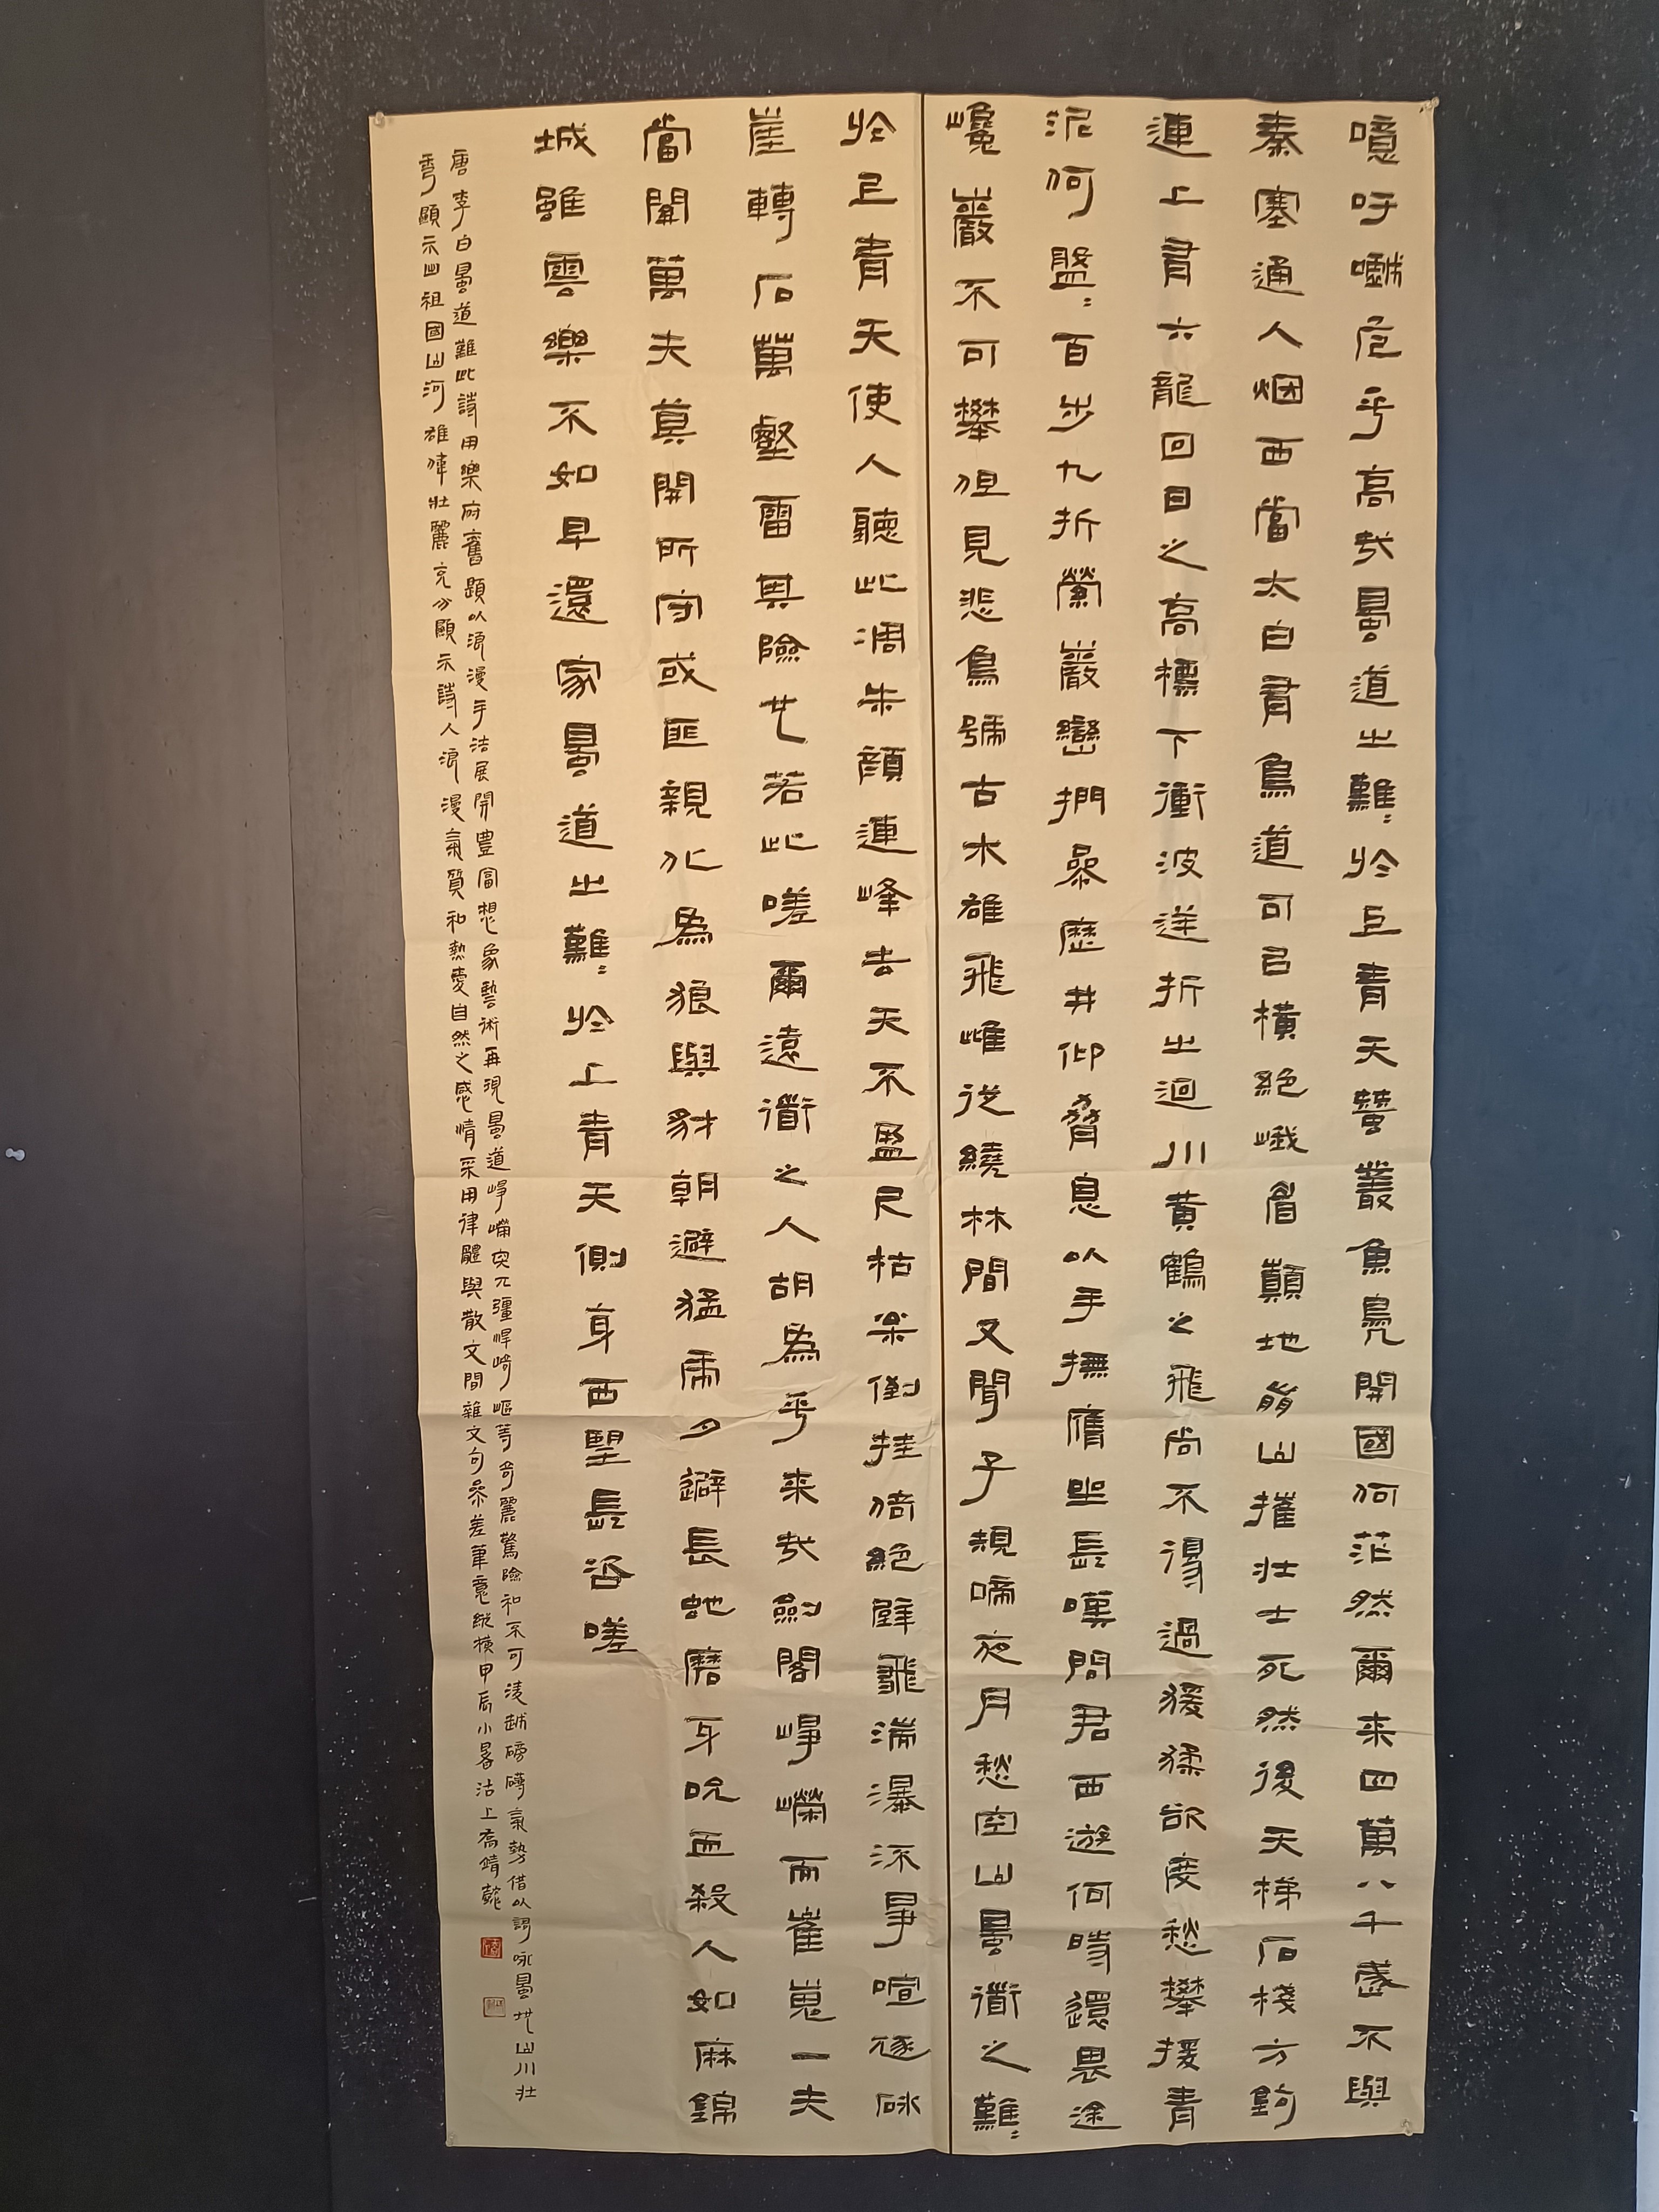 噫吁嚱危乎高哉蜀道之難〻於上青天蠶叢魚鳧開國何茫然爾来四萬八千歲不與
秦塞通人烟西當太白有鳥道可以橫絕峨眉巔地崩山摧壯士死然後天梯石棧方鉤
連上有六龍回日之高標下衝波逆折之迴川黃鶴之飛尚不得過猨猱欲度愁攀援青
泥何盤〻百步九折縈巖巒捫參歷井仰脅息以手撫膺坐長嘆問君西遊何時還畏途
巉巖不可攀但見悲鳥號古木雄飛雌從繞林間又聞子規啼夜月愁空山蜀道之難〻
於上青天使人聽此凋朱顏連峰去天不盈尺枯松倒挂倚絕壁飛湍瀑流爭喧豗砯
崖轉石萬壑雷其險也若此嗟爾遠道之人胡為乎来哉劍閣崢嶸而崔嵬一夫
當關萬夫莫開所守或匪親化為狼與豺朝避猛虎夕避長蛇磨牙吮血殺人如麻錦
城雖雲樂不如早還家蜀道之難〻於上青天側身西望長咨嗟
唐李白蜀道難此詩用樂府舊題以浪漫手法展開豐富想象藝術再現蜀道崢嶸突兀彊悍崎嶇等奇麗驚險和不可淩越磅礴氣勢借以謌咏蜀地山川壯
秀顯示出祖國山河雄偉壯麗充分顯示詩人浪漫氣質和熱愛自然之感情采用律體與散文間雜文句參差筆意縱橫甲辰小暑沽上高